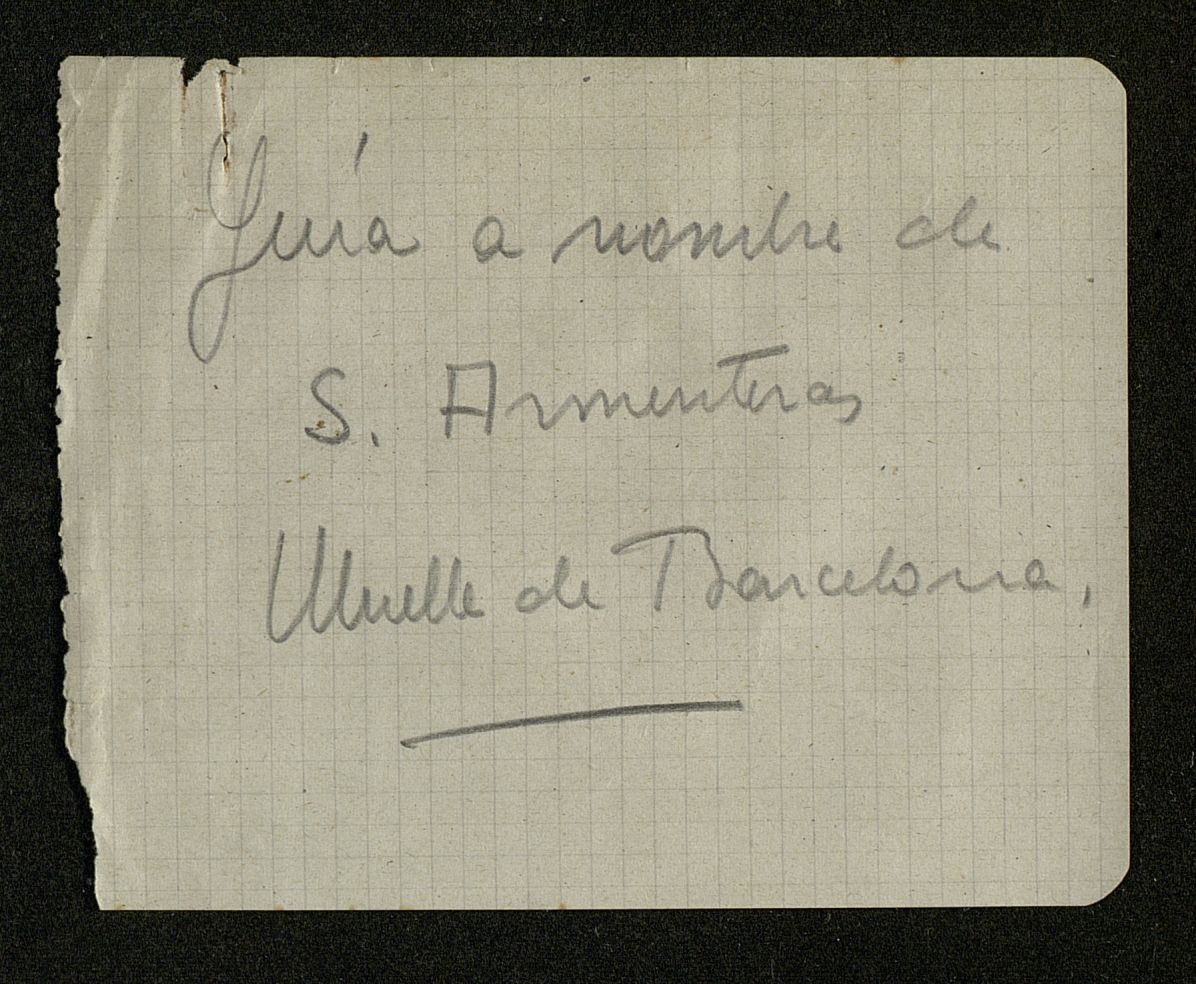 Guía a nombre de
S. Armenteras
Muelle de Barcelona,